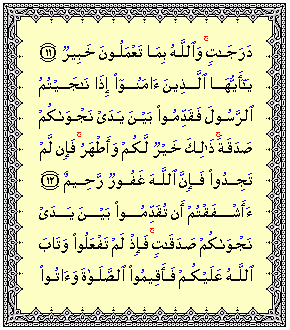 دَرَجَـٰتٍۢ ۚ وَٱللَّهُ بِمَا تَعْمَلُونَ خَبِيرٌۭ ﴿١١﴾
يَـٰٓأَيُّهَا ٱلَّذِينَ ءَامَنُوٓا۟ إِذَا نَـٰجَيْتُمُ
ٱلرَّسُولَ فَقَدِّمُوا۟ بَيْنَ يَدَىْ نَجْوَىٰكُمْ
صَدَقَةًۭ ۚ ذَٰلِكَ خَيْرٌۭ لَّكُمْ وَأَطْهَرُ ۚ فَإِن لَّمْ
تَجِدُوا۟ فَإِنَّ ٱللَّهَ غَفُورٌۭ رَّحِيمٌ ﴿١٢﴾
ءَأَشْفَقْتُمْ أَن تُقَدِّمُوا۟ بَيْنَ يَدَىْ
نَجْوَىٰكُمْ صَدَقَـٰتٍۢ ۚ فَإِذْ لَمْ تَفْعَلُوا۟ وَتَابَ
ٱللَّهُ عَلَيْكُمْ فَأَقِيمُوا۟ ٱلصَّلَوٰةَ وَءَاتُوا۟